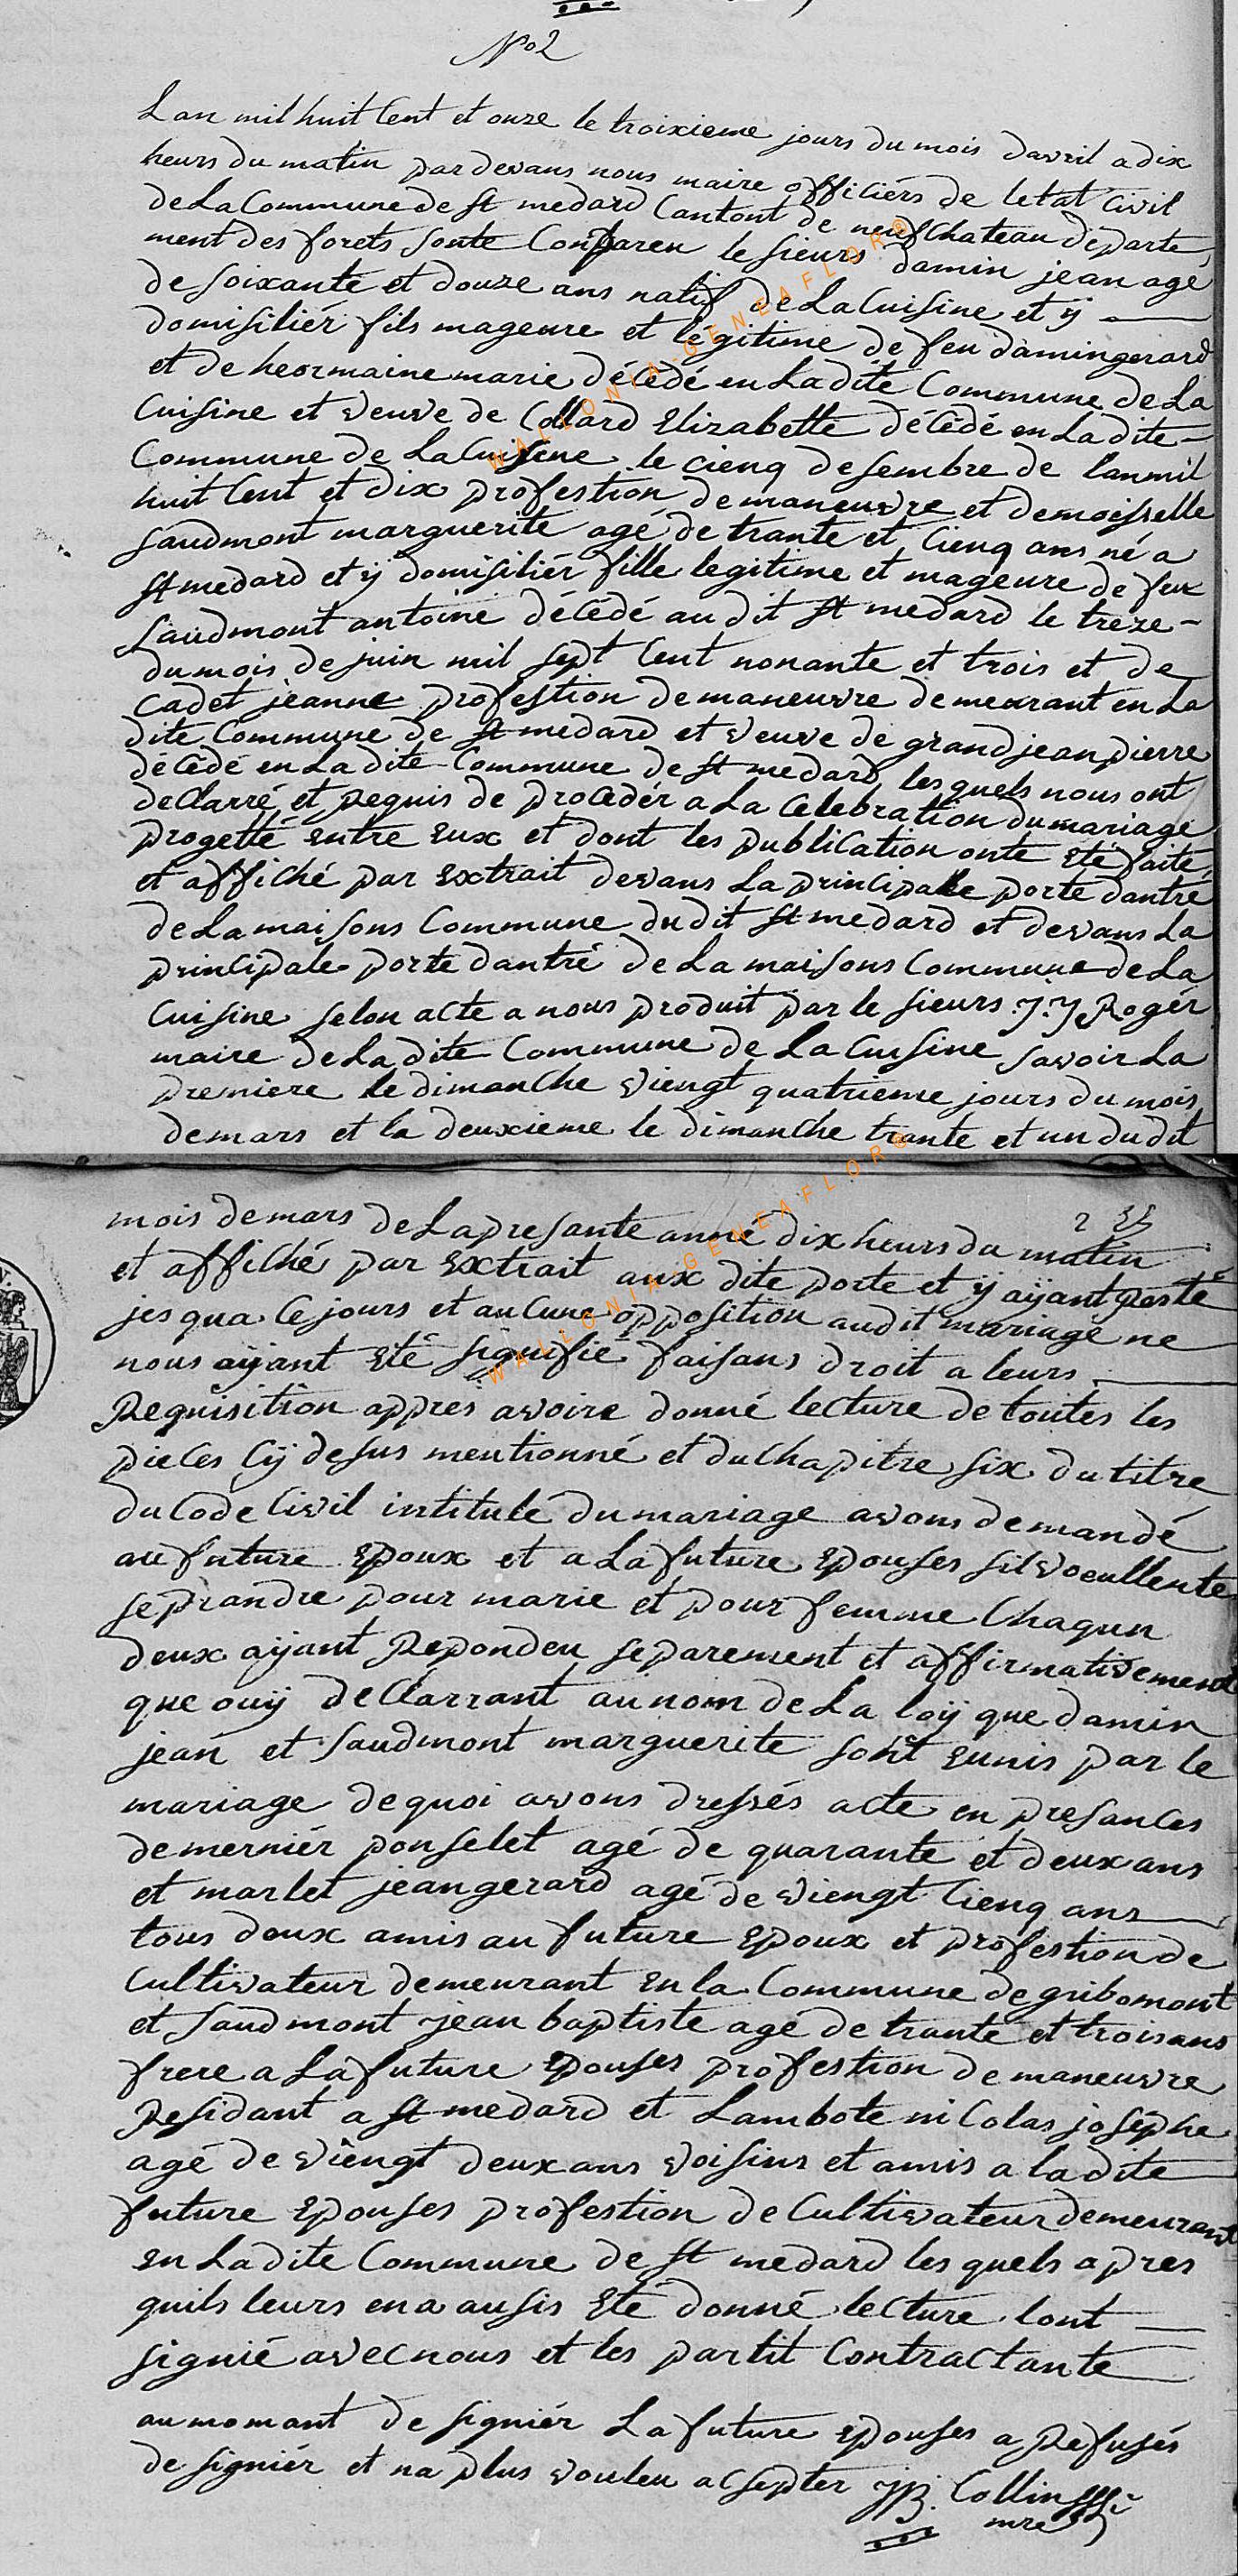 No 2
Lan mil huit Cent et onze le troixieme jours du mois davril a dix
heurs du matin par devans nous maire officiérs de letat Civil
de La Commune de St medard Cantont de neufChateau departe,
ment des forets sonte Conparen le sieurs damin jean agé
de soixante et douze ans natif de La Cuisine et ÿ
domisiliér fils mageure et légitime de feu damin gerard
et de heormaine marie décédé en La dite Commune de La
Cuisine et veuve de Collard Elizabette décédé en La dite
Commune de La Cuisene le cienq desembre de lan mil
huit Cent et dix profestion de maneuvre et demoisselle
saudmont marguerite agé de trante et Cienq ans né a
St medard et ÿ domisiliér fille legitime et mageure de feux
saudmont antoine décédé au dit St medard le treze
du mois de juin mil sept Cent nonante et trois et de
Cadet jeanne profestion de maneuvre demeurant en La
dite Commune de St medard et veuve de grandjean pierre
décédé en La dite Commune de St medard les quels nous ont
de Clarré et Requis de procedér a La Celebration du mariage
progetté entre eux et dont les publication onte eté faite,
et affiché par extrait devans La principalle porte dantré
de La maisons Commune du dit St medard et devans La
principale porte dantré de La maisons Commune de La
Cuisine selon acte a nous produit par le sieurs J. J Rogér
maire de La dite Commune de La Cuisine savoir La
premiere le dimanche viengt quatrieme jours du mois
de mars et la deuxieme le dimanche trante et un du dit
mois de mars de La presante anné dix heurs du matin
et affiché par extrait aux dite porte et ÿ aÿant Resté
jesqua Ce jours et aucune opposition au dit mariage ne
nous aÿant eté signifié faisans droit a leurs
Requisition appres avoire donné lecture de toutes les
pieces Cÿ desus mentionné et du Chapitre six du titre
du Code Civil intitulé du mariage avons demandé
au future epoux et a La future epouses sil voeullente
se prandre pour marie et pour femme Chaqun
deux aÿant Repondeu separement et affirmativement
que ouÿ de Clarrant au nom de La loÿ que damin
jean et saudmont marguerite sont eunis par le
mariage de quoi avons dressés acte en presances
de merniér ponselet agé de quarante et deux ans
et marlet jean gerard agé de viengt Cienq ans
tous deux amis au future epoux et profestion de
Cultivateur demeurant en la Commune de gribomont
et saudmont jean baptiste agé de trante et trois ans
frere a La future epouses profestion de maneuvre
Residant a St medard et Lambote nicolas josephe
agé de viengt deux ans voisins et amis a la dite
future epouses profestion de Cultivateur demeurant
en La dite Commune de St medard les quels apres
quils leurs en a ausis eté donné lecture lont
signié avec nous et les partit Contractante
au momant de signiér La future epouses a Refusés
de signiér et na plus vouleu acsepter JB. Collin
mre
WALLONIA-GENEAFLOR®
WALLONIA-GENEAFLOR®